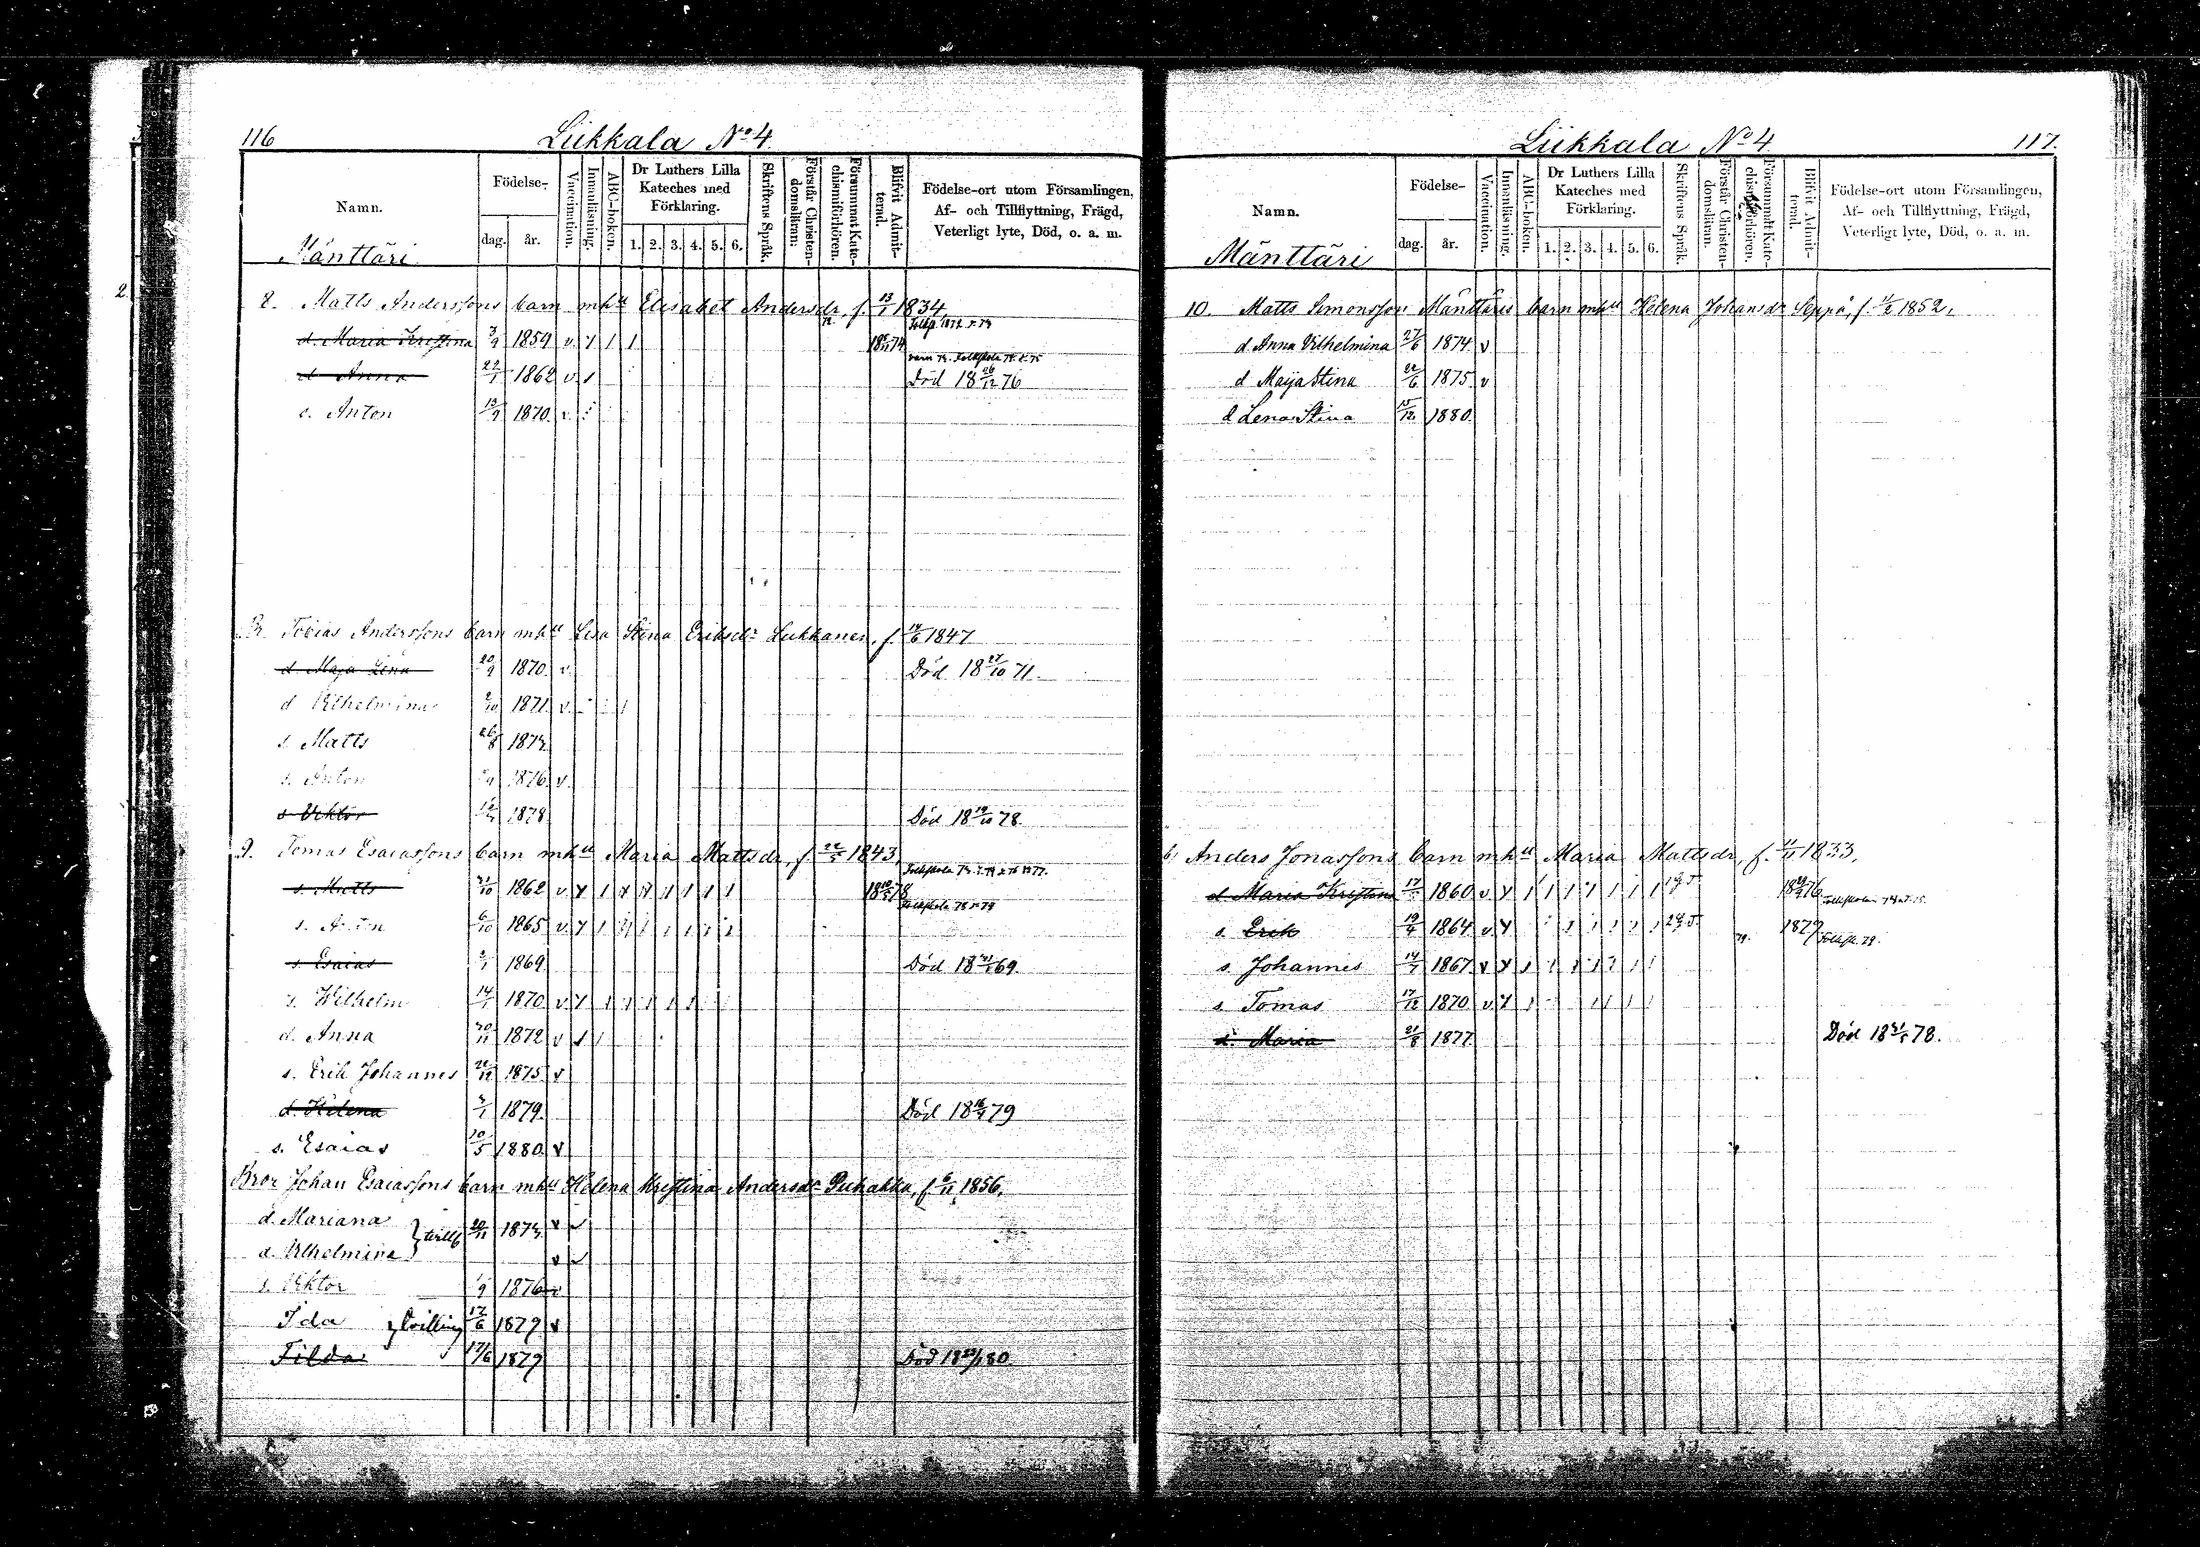 116
Liikkala No 4.
Namn.
Mänttäri
Födelse-
dag.
år.
Vaccination.
Innanläsning.
ABC-boken.
Dr Luthers Lilla Kateches med Förklaring.
1. 2. 3. 4. 5. 6.
Skriftens Språk.
Förstår Christendomsläran:
Försummat Katechismiförhören.
Blifvit Admitterad.
Födelse-ort utom Församlingen,
Af- och Tillflyttning, Frägd,
Veterligt lyte, Död, o. a. m.
8. Matts Anderssons barn mhu Elisabet Andersdr, f. 13/1 1834.
d. Maria Kristina 3/9 1859 v.
d Anna 22/1 1862 v. Död 18 26/12 76
s. Anton 13/9 1870 v.
Br. Tobias Anderssons barn mhu Lisa Stina Eriksdr Liikkanen, f. 14/6 1847
d. Maja Lena 20/9 1870 v. Död 18 27/10 71.
d Vilhelmina 2/10 1871 v.
s. Matts 26/8 1873
s. Anton 1876 v.
s Viktor 1878 Död 18 19/10 78
9. Tomas Esaiassons barn mhu Maria Mattsdr, f. 22/5 1843,
s. Matts 31/10 1862 v.
s. Anton 6/10 1865 v.
s. Esaias 1869 Död 18 69
s. Wilhelm 14/1 1870 v.
d. Anna 30/11 1872 v
s. Erik Johannes 12 1875 v
d. Helena 1879. Död 18 79
s. Esaias 10/5 1880 v
Bror Johan Esaiassons barn mhu Helena Kristina Andersdr Puhakka, f. 6/11 1856,
d. Mariana 20/11 1873 v
d. Vilhelmina v
s. Viktor 1/9 1876 v
Ida tvilling 17/6 1879 v
Tilda 17/6 1879 Död 18 80
Liikkala No 4
117.
Namn.
Mänttäri
Födelse-
dag.
år.
Vaccination.
Innanläsning.
ABC-boken.
Dr Luthers Lilla Kateches med Förklaring.
1. 2. 3. 4. 5. 6.
Skriftens Språk.
Förstår Christendomsläran.
Försummat Katechismiförhören.
Blifvit Admitterad.
Födelse-ort utom Församlingen,
Af- och Tillflyttning, Frägd,
Veterligt lyte, Död, o. a. m.
10. Matts Simonsson Mänttäris barn mhu Helena Johansdr Seppä, f. 1852,
d. Anna Vilhelmina 27/6 1874 v
d Maija Stina 22/6 1875 v
d Lena Stina 15/12 1880.
Anders Jonassons barn mhu Maria Mattsdr, f. 1833,
d Maria Kristina 1860 v
s. Erik 19/4 1864 v. 1879
s. Johannes 14/7 1867 v
s. Tomas 17/12 1870 v.
d. Maria 21/8 1877 Död 18 78.